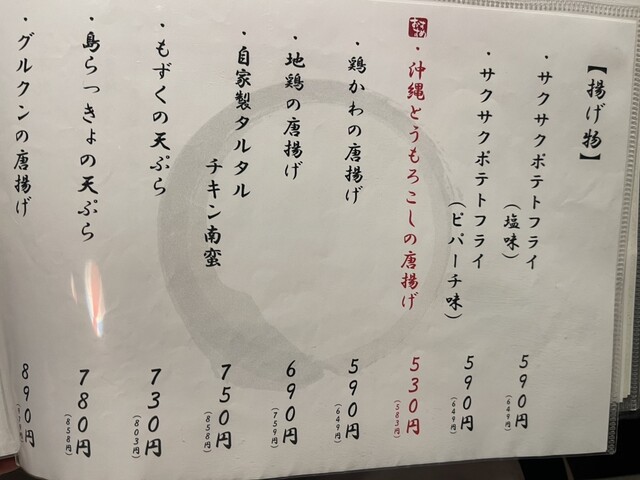 【揚げ物】
・サクサクポテトフライ
(塩味)
590円
(649円)
・サクサクポテトフライ
(ピパーチ味)
590円
(649円)
おすすめ
・沖縄とうもろこしの唐揚げ
530円
(583円)
・鶏かわの唐揚げ
590円
(649円)
・地鶏の唐揚げ
690円
(759円)
・自家製タルタル
チキン南蛮
750円
(858円)
・もずくの天ぷら
730円
(803円)
・島らっきょの天ぷら
780円
(858円)
・グルクンの唐揚げ
890円